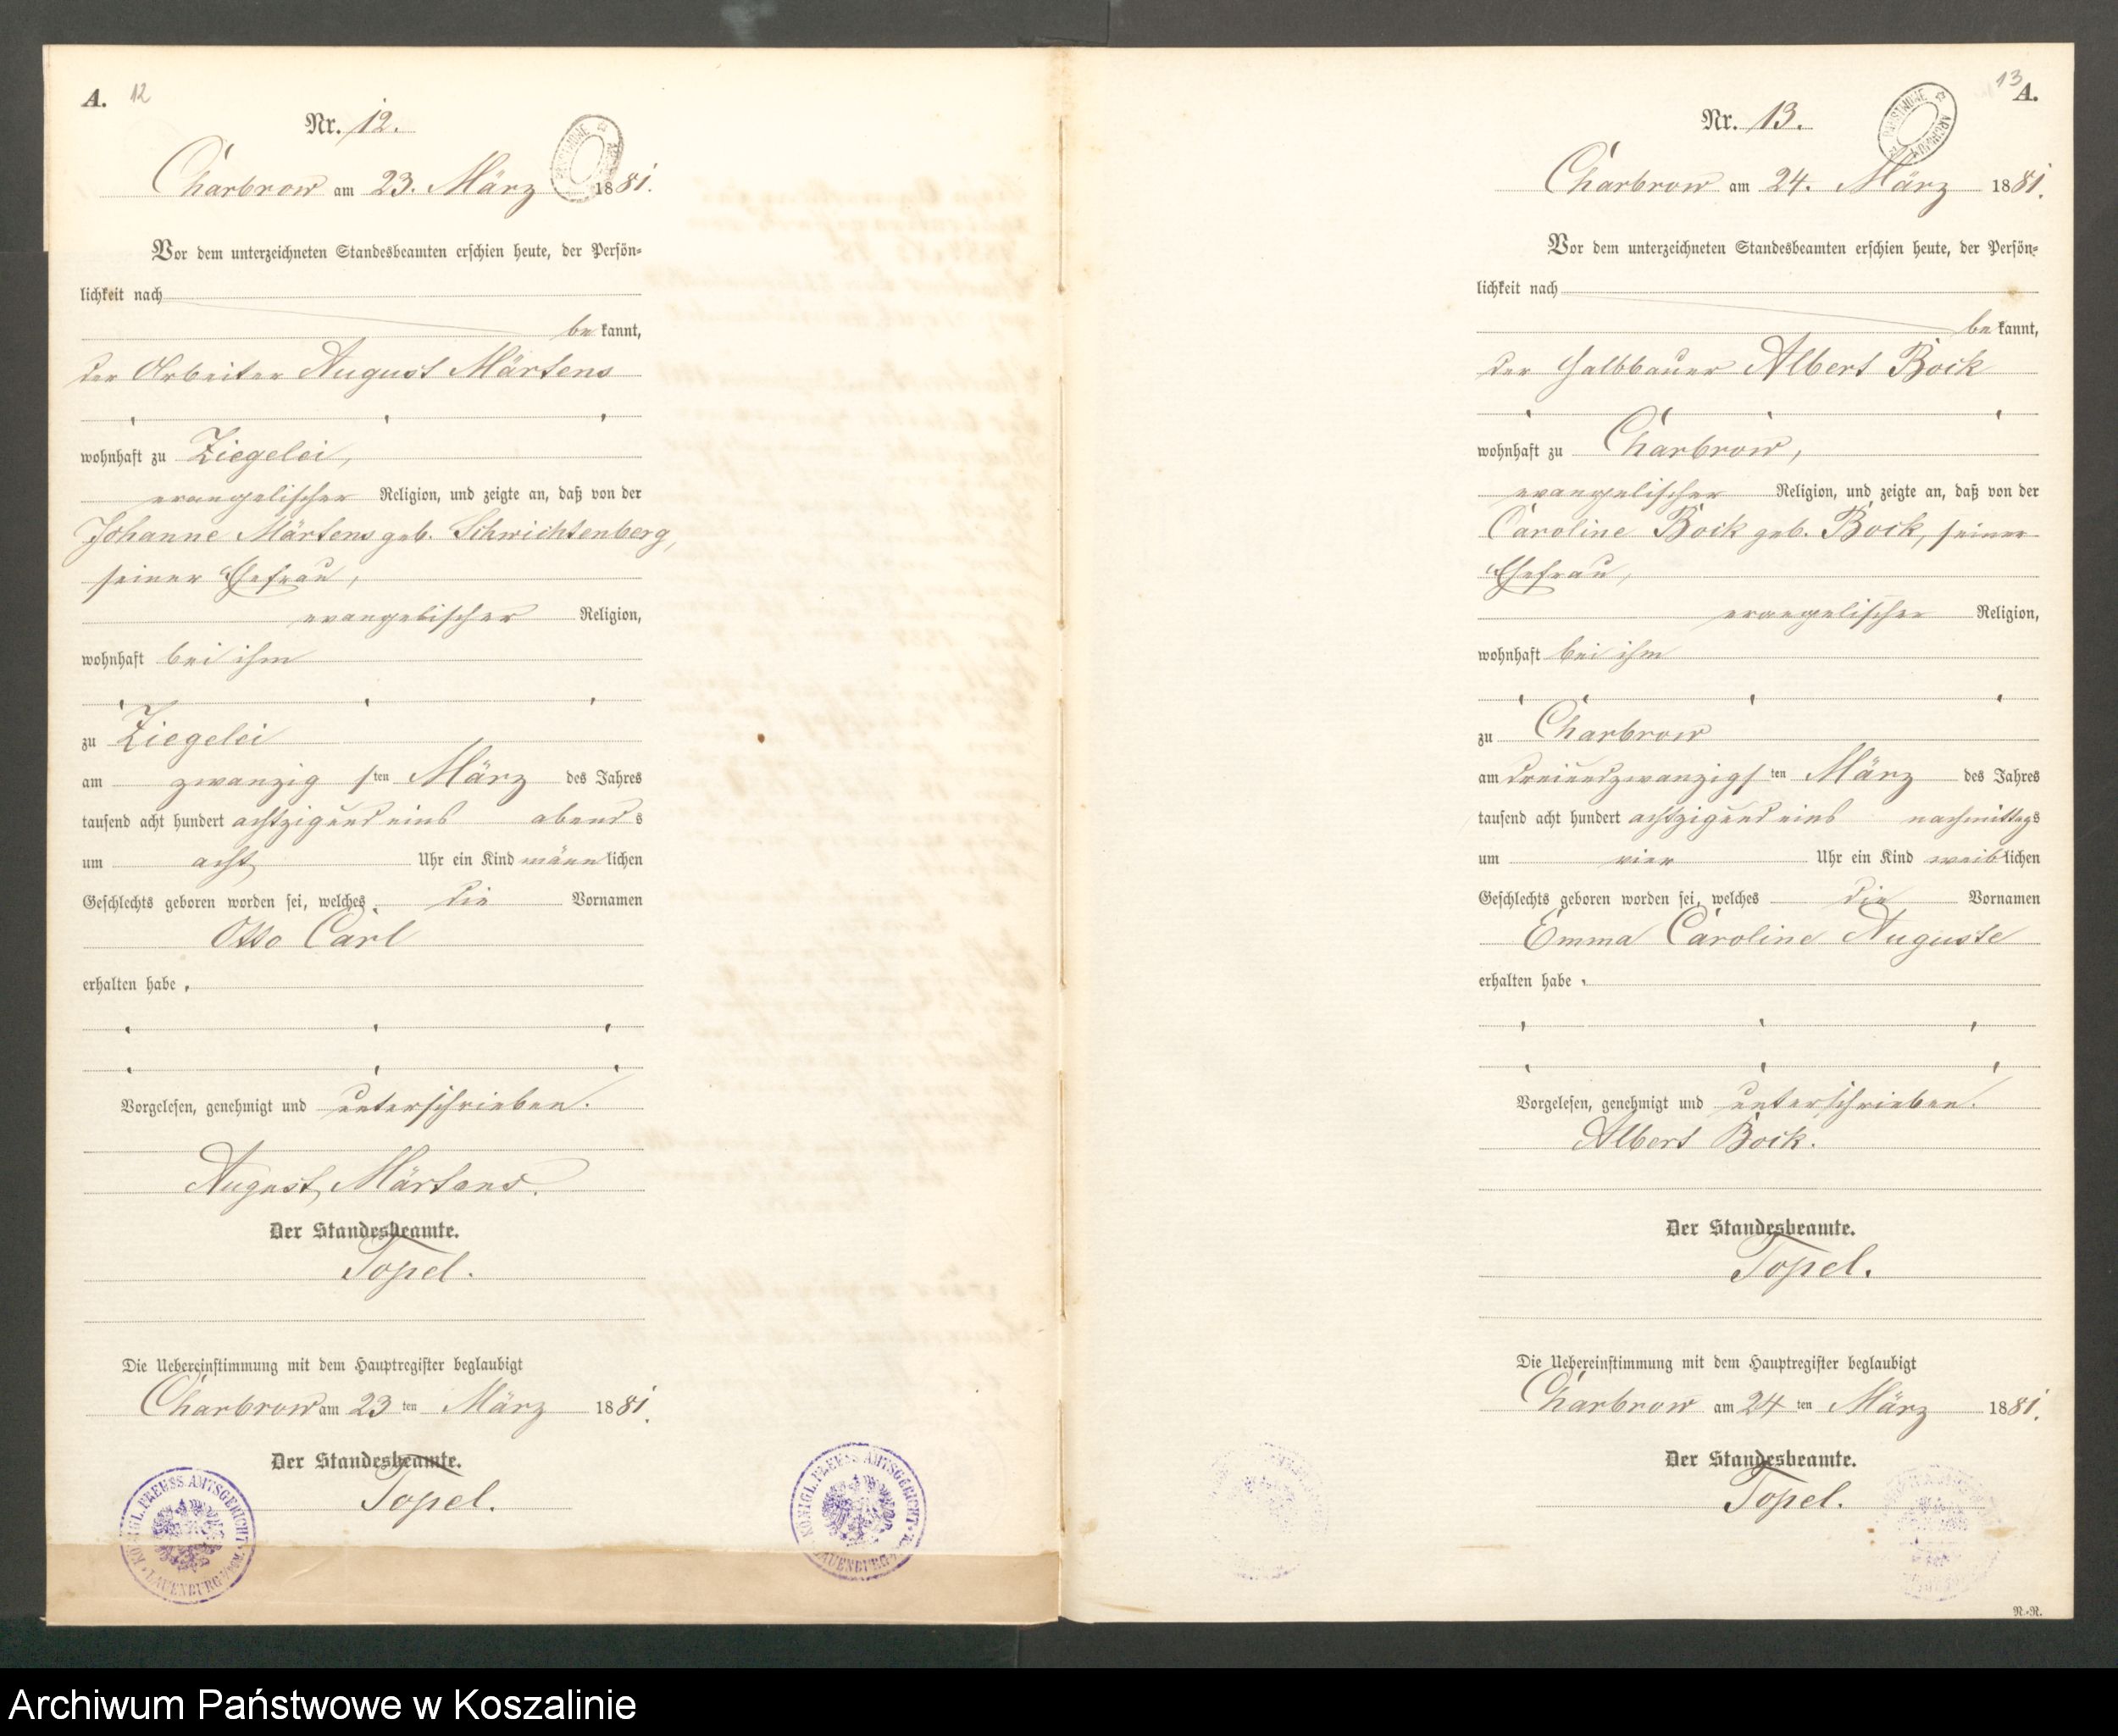 A. 12
Nr. 12.
Charbrow am 23. März 1881.
Vor dem unterzeichneten Standesbeamten erschien heute, der Persön=
lichkeit nach
be kannt,
der Arbeiter August Märtens
wohnhaft zu Ziegelei,
evangelischer Religion, und zeigte an, daß von der
Johanne Märtens geb. Schwichtenberg,
seiner Ehefrau,
evangelischer Religion,
wohnhaft bei ihm
zu Ziegelei
am zwanzigsten März des Jahres
tausend acht hundert achtzig und eins abends
um acht Uhr ein Kind männlichen
Geschlechts geboren worden sei, welches die Vornamen
Otto Carl
erhalten habe.
Vorgelesen, genehmigt und unterschrieben.
August Märtens.
Der Standesbeamte.
Topel.
Die Uebereinstimmung mit dem Hauptregister beglaubigt
Charbrow am 23ten März 1881.
Der Standesbeamte.
Topel.
KÖNIGL. PREUSS AMTSGERICHT LAUENBURG
KÖNIGL. PREUSS AMTSGERICHT LAUENBURG
13 A.
Nr. 13.
ARCHIWUM
Charbrow am 24. März 1881.
Vor dem unterzeichneten Standesbeamten erschien heute, der Persön=
lichkeit nach
be kannt,
der Halbbauer Albert Bock
wohnhaft zu Charbrow,
evangelischer Religion, und zeigte an, daß von der
Caroline Bock geb. Bock, seiner
Ehefrau,
evangelischer Religion,
wohnhaft bei ihm
zu Charbrow
am dreiundzwanzigsten März des Jahres
tausend acht hundert achtzig und eins nachmittags
um vier Uhr ein Kind weiblichen
Geschlechts geboren worden sei, welches die Vornamen
Emma Caroline Auguste
erhalten habe.
Vorgelesen, genehmigt und unterschrieben.
Albert Bock.
Der Standesbeamte.
Topel.
Die Uebereinstimmung mit dem Hauptregister beglaubigt
Charbrow am 24ten März 1881.
Der Standesbeamte.
Topel.
R.-R.
Archiwum Państwowe w Koszalinie